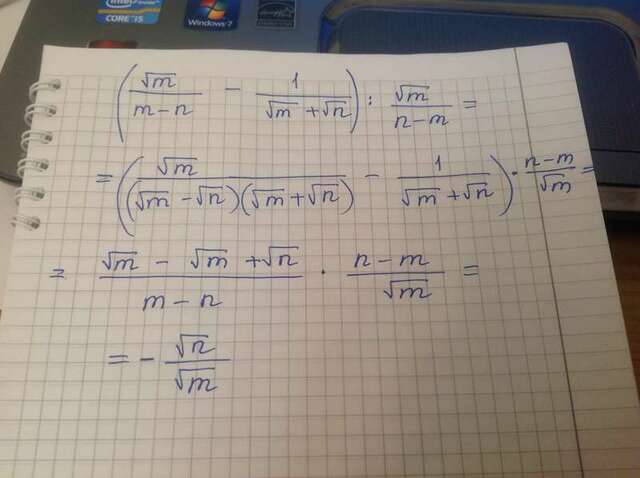 intel
CORE i5
Windows 7
(√m/(m-n) - 1/(√m+√n)) : √m/(n-m) =
= (√m/((√m-√n)(√m+√n)) - 1/(√m+√n)) · (n-m)/√m =
= (√m - √m + √n)/(m-n) · (n-m)/√m =
= - √n/√m